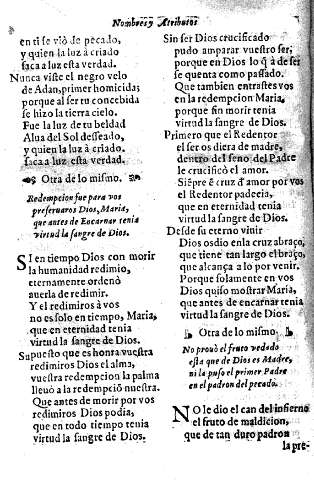 Nombres, y Atributos
en ti se viò de pecado,
y quien la luz à criado
saca a luz esta verdad.
Nunca viste el negro velo
de Adan, primer homicida;
porque al ser tu concebida
se hizo la tierra cielo.
Fue la luz de tu beldad
Alua del Sol deseado,
y quien la luz à criado,
saca a luz esta verdad.
Otra de lo mismo.
Redempcion fue para vos
preseruaros Dios, Maria,
que antes de Encarnar tenia
virtud la sangre de Dios.
SI en tiempo Dios con morir
la humanidad redimio,
eternamente ordenò
auerla de redimir.
Y el redimiros à vos
no es solo en tiempo, Maria,
que en eternidad tenia
virtud la sangre de Dios.
Supuesto que es honra vuestra
redimiros Dios el alma,
vuestra redempcion la palma
lleuò a la redempciõ nuestra.
Que antes de morir por vos
redimiros Dios podia,
que en todo tiempo tenia
virtud la sangre de Dios.
Sin ser Dios crucificado
pudo amparar vuestro ser;
porque en Dios lo q̃ à de ser
se quenta como passado.
Que tambien entrastes vos
en la redempcion Maria,
porque sin morir tenia
virtud la sangre de Dios.
Primero que el Redentor
el ser os diera de madre,
dentro del seno del Padre
le crucificò el amor.
Siẽpre ẽ cruz d' amor por vos
el Redentor padecia,
que en eternidad tenia
virtud la sangre de Dios.
Desde su eterno viuir
Dios os diò en la cruz abraço,
que tiene tan largo el braço,
que alcança a lo por venir.
Porque solamente en vos
Dios quiso mostrar Maria,
que antes de encarnar tenia
virtud la sangre de Dios.
Otra de lo mismo.
No prouò el fruto vedado
esta que de Dios es Madre,
ni la puso el primer Padre
en el padron del pecado.
NO le dio el can del infierno
el fruto de maldicion,
que de tan duro padron
la pre-